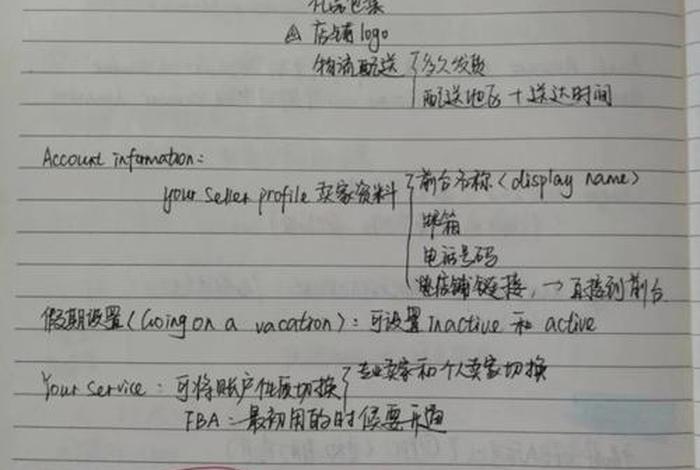 礼品包装
△ 店铺logo
物流配送 多久发货
配送地区 + 送达时间
Account information:
your seller profile 卖家资料 前台名称(display name)
邮箱
电话号码
店铺链接, → 直接到前台
假期设置(Going on a vacation): 可设置 Inactive 和 active
Your service: 可将账户性质切换 专业卖家和个人卖家切换
FBA: 最初用的时候要开通